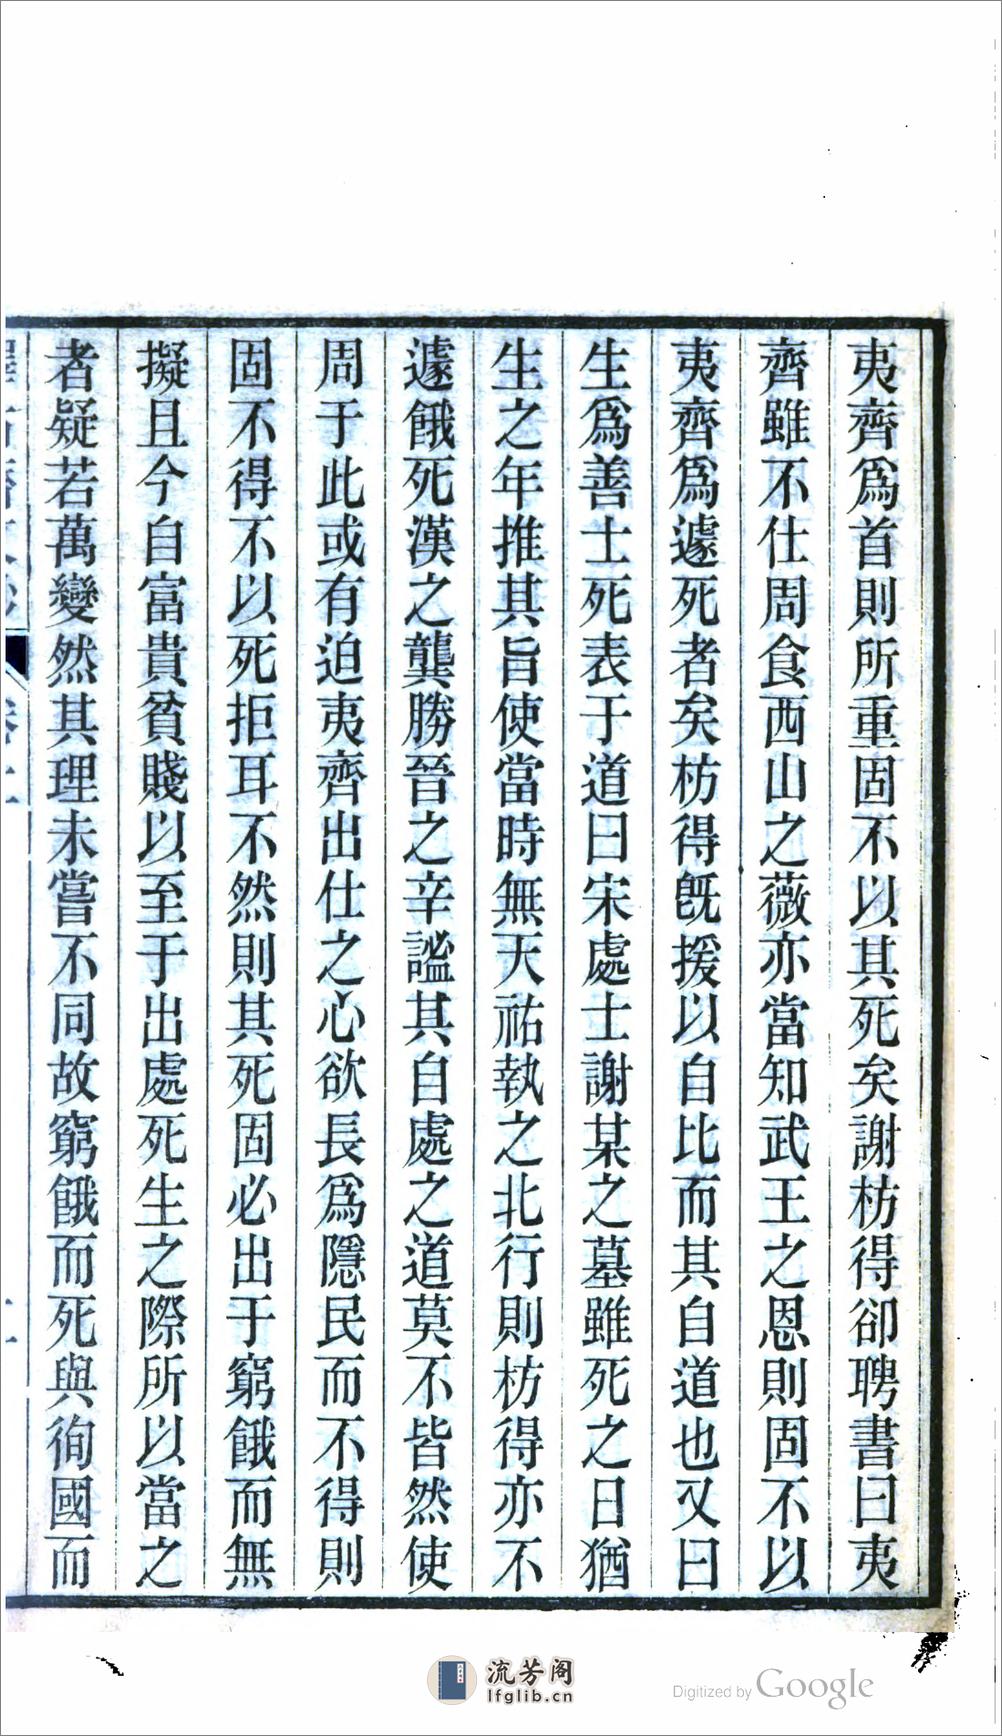 夷齊爲首則所重固不以其死矣謝枋得卻聘書曰夷
齊雖不仕周食西山之薇亦當知武王之恩則固不以
夷齊爲遽死者矣枋得旣援以自比而其自道也又曰
生爲善士死表于道曰宋處士謝某之墓雖死之日猶
生之年推其旨使當時無天祐執之北行則枋得亦不
遽餓死漢之龔勝晉之辛謐其自處之道莫不皆然使
周于此或有迫夷齊出仕之心欲長爲隱民而不得則
固不得不以死拒耳不然則其死固必出于窮餓而無
擬且今自富貴貧賤以至于出處死生之際所以當之
者疑若萬變然其理未嘗不同故窮餓而死與徇國而
流芳阁
lfglib.cn
Digitized by Google